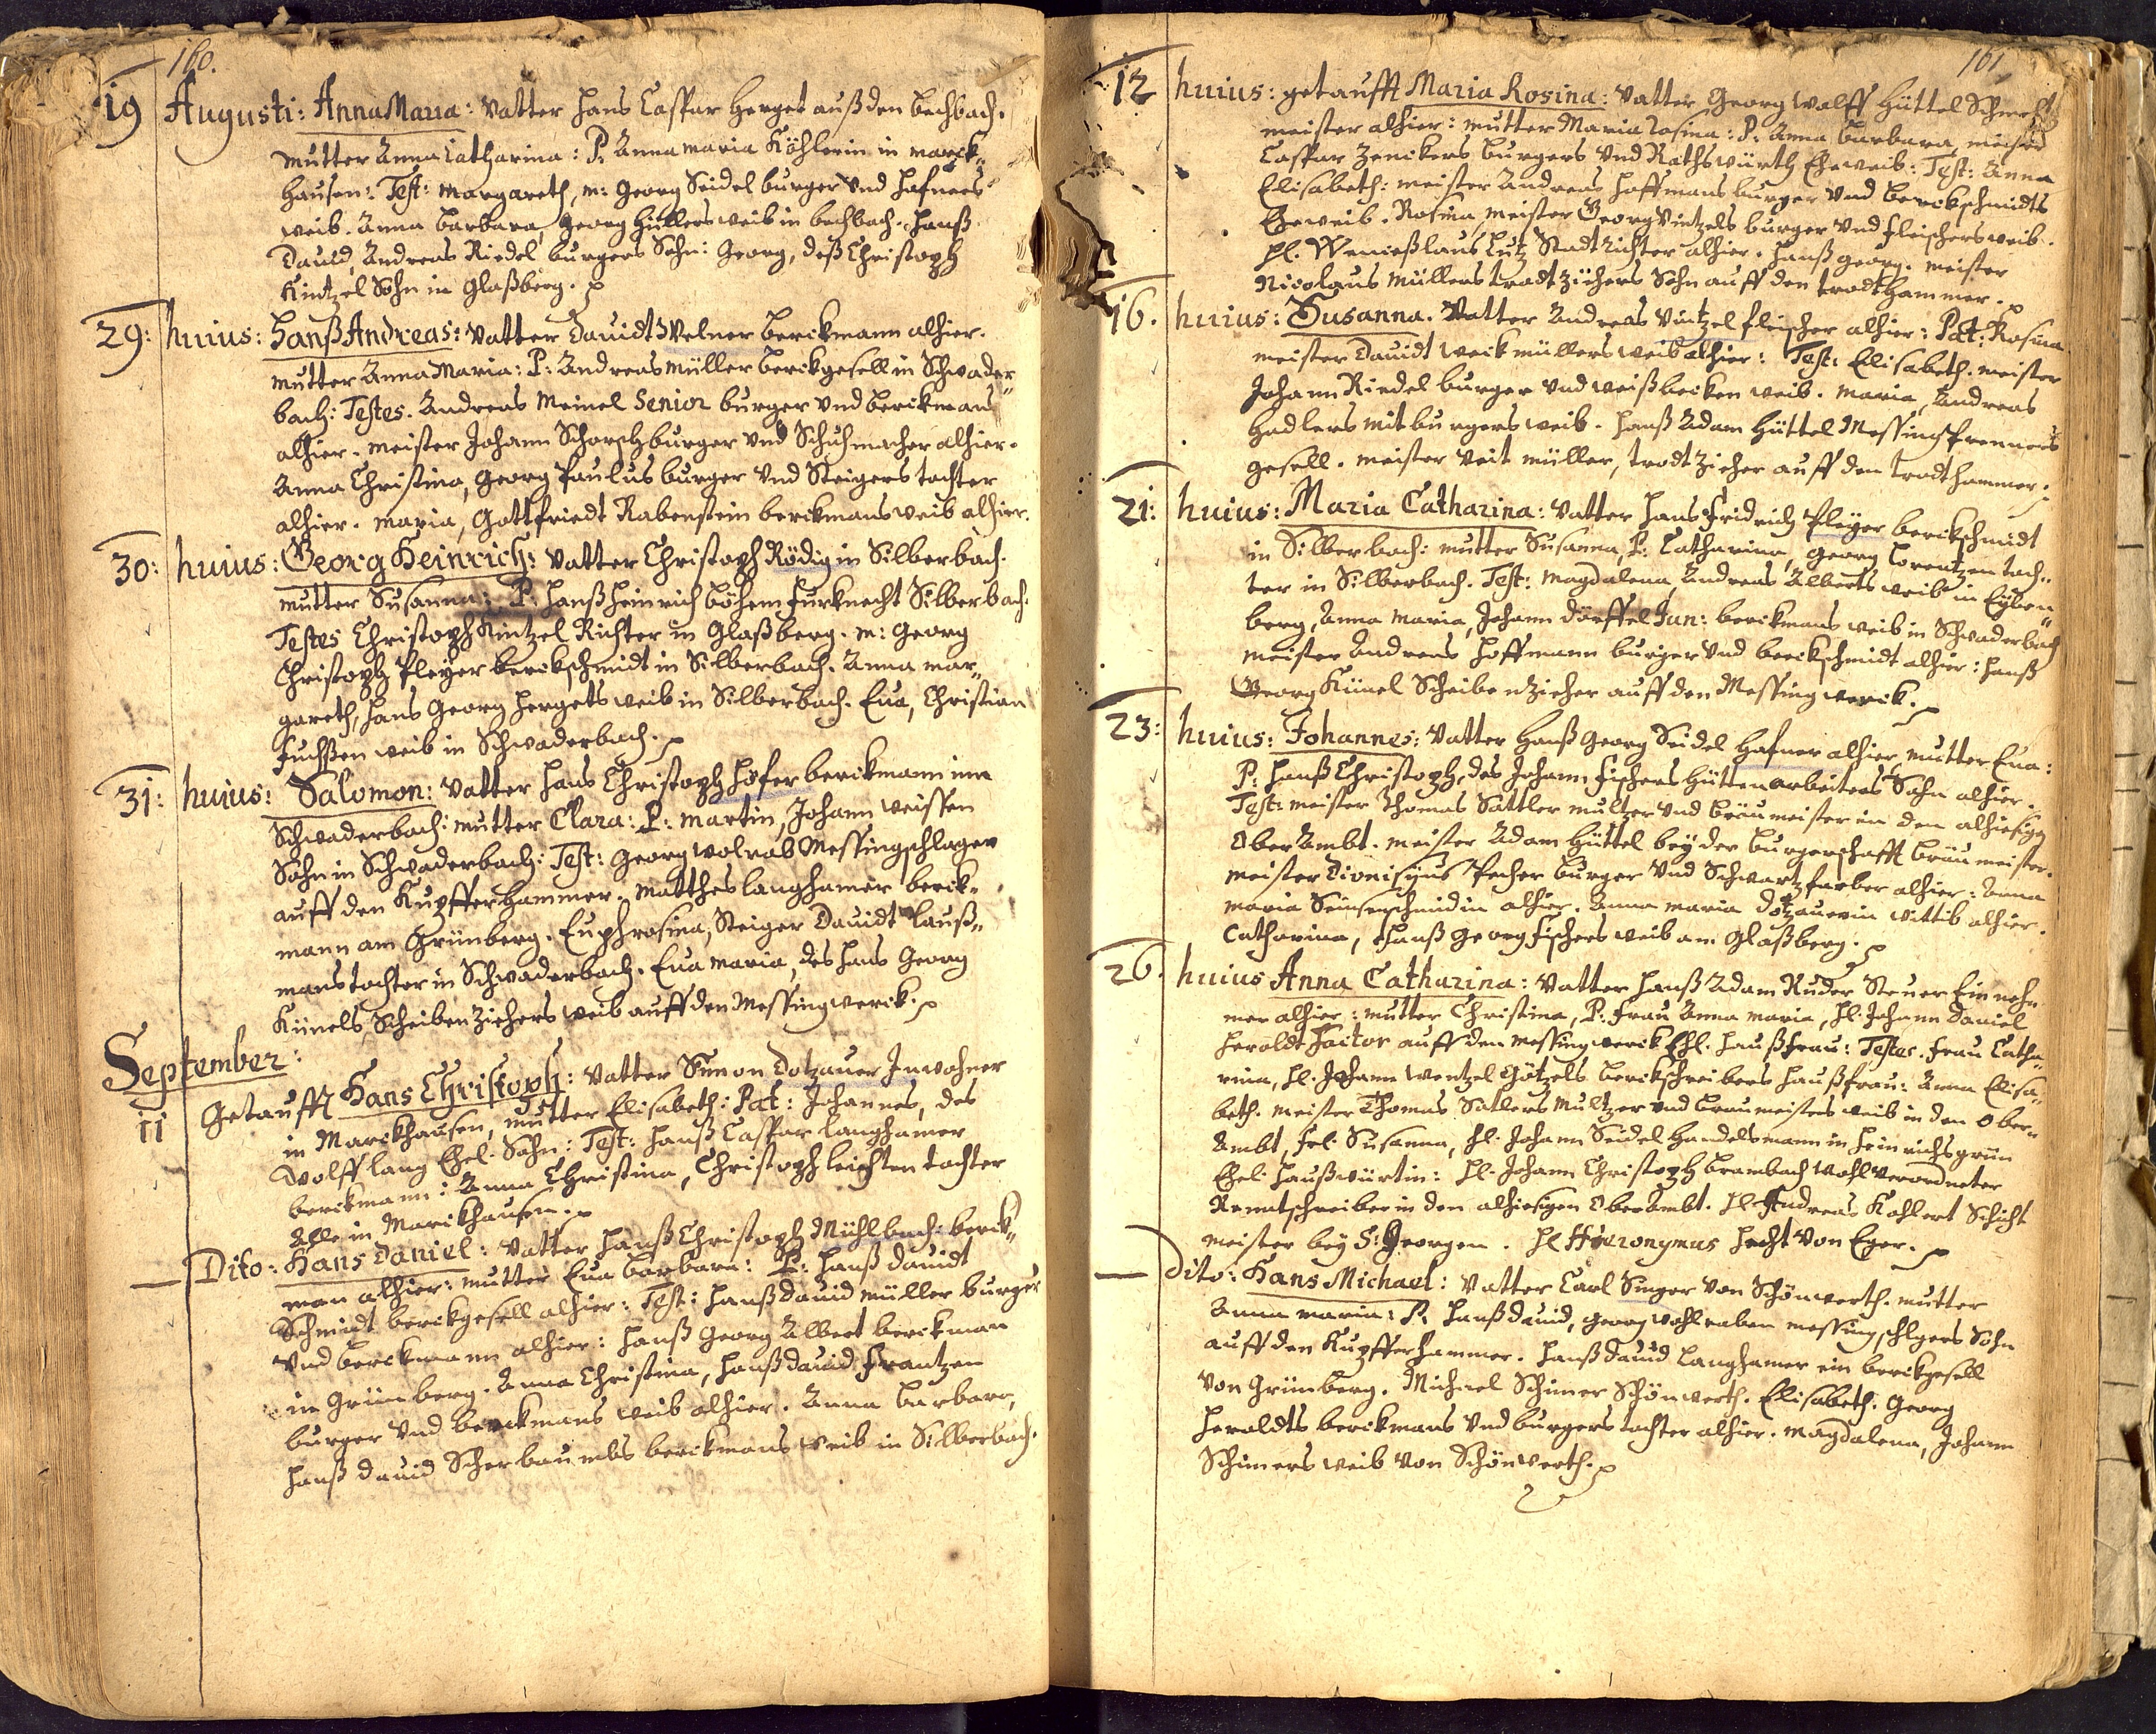 160.
19 Augusti: Anna Maria: Vatter Hans Caspar Herget auß den Bechbach.
Mutter Anna Catharina: P. Anna Maria Köhlerin in Marck„
hausen: Test: Margareth, M: Georg Seidel burger vnd Hafners
weib. Anna Barbara, Georg Hüllers weib in bechbach. Hanß
Dauid, Andreas Riedel burgers Sohn: Georg, deß Christoph
Kintzel Sohn in Glaßberg.
29: huius: Hanß Andreas: Vatter Dauidt Welner berckmann alhier.
Mutter Anna Maria: P: Andreas Müller berckgesell in Schwader„
bach: Testes. Andreas Meinel Senior burger vnd berckman
alhier. Meister Johann Schorsch burger vnd Schuhmacher alhier.
Anna Christina, Georg Paulus burger vnd Steigers tochter
alhier. Maria, Gottfriedt Rabenstein berckmans weib alhier.
30: huius: Georg Heinrich: Vatter Christoph Rödig in Silberbach.
Mutter Susanna: P. Hanß Heinrich Böhem furknecht Silberbach.
Testes Christoph Kintzel Richter in Glaßberg. M: Georg
Christoph Pleyer berckschmidt in Silberbach. Anna Mar„
gareth, Hans Georg Hergets weib in Silberbach. Eua, Christian
Fuchßen weib in Schwaderbach.
31: huius: Salomon: Vatter Hans Christoph Hofer berckmann inn
Schwaderbach: Mutter Clara: P: Martin, Johann Weissen
Sohn in Schwaderbach: Test: Georg Wolrab Messingschlager
auff den Kupfferhammer. Matthes Langhamer berck„
mann am Grünberg. Euphrosina, Steiger Dauidt Lauß„
mans tochter in Schwaderbach. Eua Maria, des Hans Georg
Künels Scheiben Ziehers weib auff den Messingwerck.
September:
11 Getaufft Hans Christoph: Vatter Simon Dotzauer Inwohner
in Marckhausen, Mutter Elisabeth: Pat: Johannes, des
Wolff Lang Ehel. Sohn: Test: Hanß Caspar Langhamer
berckmann: Anna Christina, Christoph Leichten tochter
Alle in Marckhausen.
Dito: Hans Daniel: Vatter Hanß Christoph Mühlbach: berck„
man alhier: Mutter Eua Barbara: P: Hanß Dauidt
Schmidt berckgesell alhier: Test: Hanß Dauid Müller burger
vnd berckmann alhier: Hanß Georg Albert berckman
in Grünberg. Anna Christina, Hanß Dauid Frantzen
burger vnd berckmans weib alhier. Anna Barbara,
Hanß Dauid Scherbaumbs berckmans weib in Silberbach.
161
12 huius: getaufft Maria Rosina: Vatter Georg Wolff Hüttel
meister alhier: Mutter Maria Rosina: P: Anna Barbara, Meister
Caspar Zenckers burgers vnd Rathswürth Eheweib: Test: Anna
Elisabeth: Meister Andreas Hoffmans burger vnd berckschmidts
Eheweib. Rosina, Meister Georg Vintzels burger vnd fleischers weib.
Hl. Wenceßlaus Lutz Stadt Richter alhier. Hanß Georg. Meister
Nicolaus Müllers tradtziehers Sohn auff den tradthammer.
16. huius: Susanna. Vatter Andreas Vintzel fleischer alhier: Pat: Rosina
Meister Dauidt Weickmüllers weib alhier: Test: Elisabeth. Meister
Johann Riedel burger vnd weißbecken weib. Maria, Andreas
Hadlers mitburgers weib. Hanß Adam Hüttel Messingbrenners
gesell. Meister Veit Müller, tradtzieher auff den tradthammer.
21: huius: Maria Catharina: Vatter Hans Fridrich Pleyer berckschmidt
in Silberbach: Mutter Susanna, P: Catharina, Georg Lorentzen toch„
ter in Silberbach. Test: Magdalena, Andreas Alberts weib in Eyben„
berg, Anna Maria, Johann Dörffel Jun: berckmans weib in Schwaderbach
Meister Andreas Hoffmann burger vnd berckschmidt alhier: Hanß
Georg Künel Scheibenzieher auff den Messingwerck.
23: huius: Johannes: Vatter Hanß Georg Seidel Hafner alhier, Mutter Eua:
P. Hanß Christoph, des Johann Fischers Hüttenarbeiters Sohn alhier.
Test: Meister Thomas Sattler Multzer vnd Bräumeister in dem alhiesigen
Ober Ambt. Meister Adam Hüttel bey der burgerschafft bräumeister.
Meister Dionisyus Pecher burger vnd Schwartzfarber alhier: Anna
Maria Sensenschmidin alhier. Anna Maria Dotzauerin wittib alhier.
Catharina, Hanß Georg Fischers weib am Glaßberg.
26. huius Anna Catharina: Vatter Hanß Adam Ruder Steuer Einneh„
mer alhier: Mutter Christina, P: Frau Anna Maria, Hl. Johann Daniel
Heroldt Factor auff den Messingwerck Ehl. Haußfrau: Testes. Frau Catha„
rina, Hl. Johann Wentzel Götzels berckschreibers Haußfrau: Anna Elisa„
beth. Meister Thomas Satlers Multzer vnd braumeisters weib in den Ober„
Ambt, frl. Susanna, Hl. Johann Seidel Handelsmann in Heinrichsgrün
Ehel. Haußwürtin: Hl. Johann Christoph Brambach Wohlverordneter
Renntschreiber in den alhiesigen Ober Ambt. Hl. Andreas Kohlert Schicht
meister bey S: Georgen. Hl. Hieronymus Hecht von Eger.
Dito: Hans Michael: Vatter Carl Singer von Schönwerth. Mutter
Anna Maria: P. Hanß Dauid, Georg Wohlraben Messingschlgers Sohn
auff den Kupfferhammer. Hanß Dauid Langhamer ein berckgesell
von Grünberg. Michael Schimer Schönwerth. Elisabeth. Georg
Heroldts berckmans vnd burgers tochter alhier. Magdalena, Johann
Schimers weib von Schönwerth.